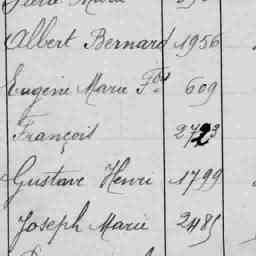 Albert Bernard 1956
Eugène Marie Fois 609
François
Gustave Henri 1799
Joseph Marie 2485